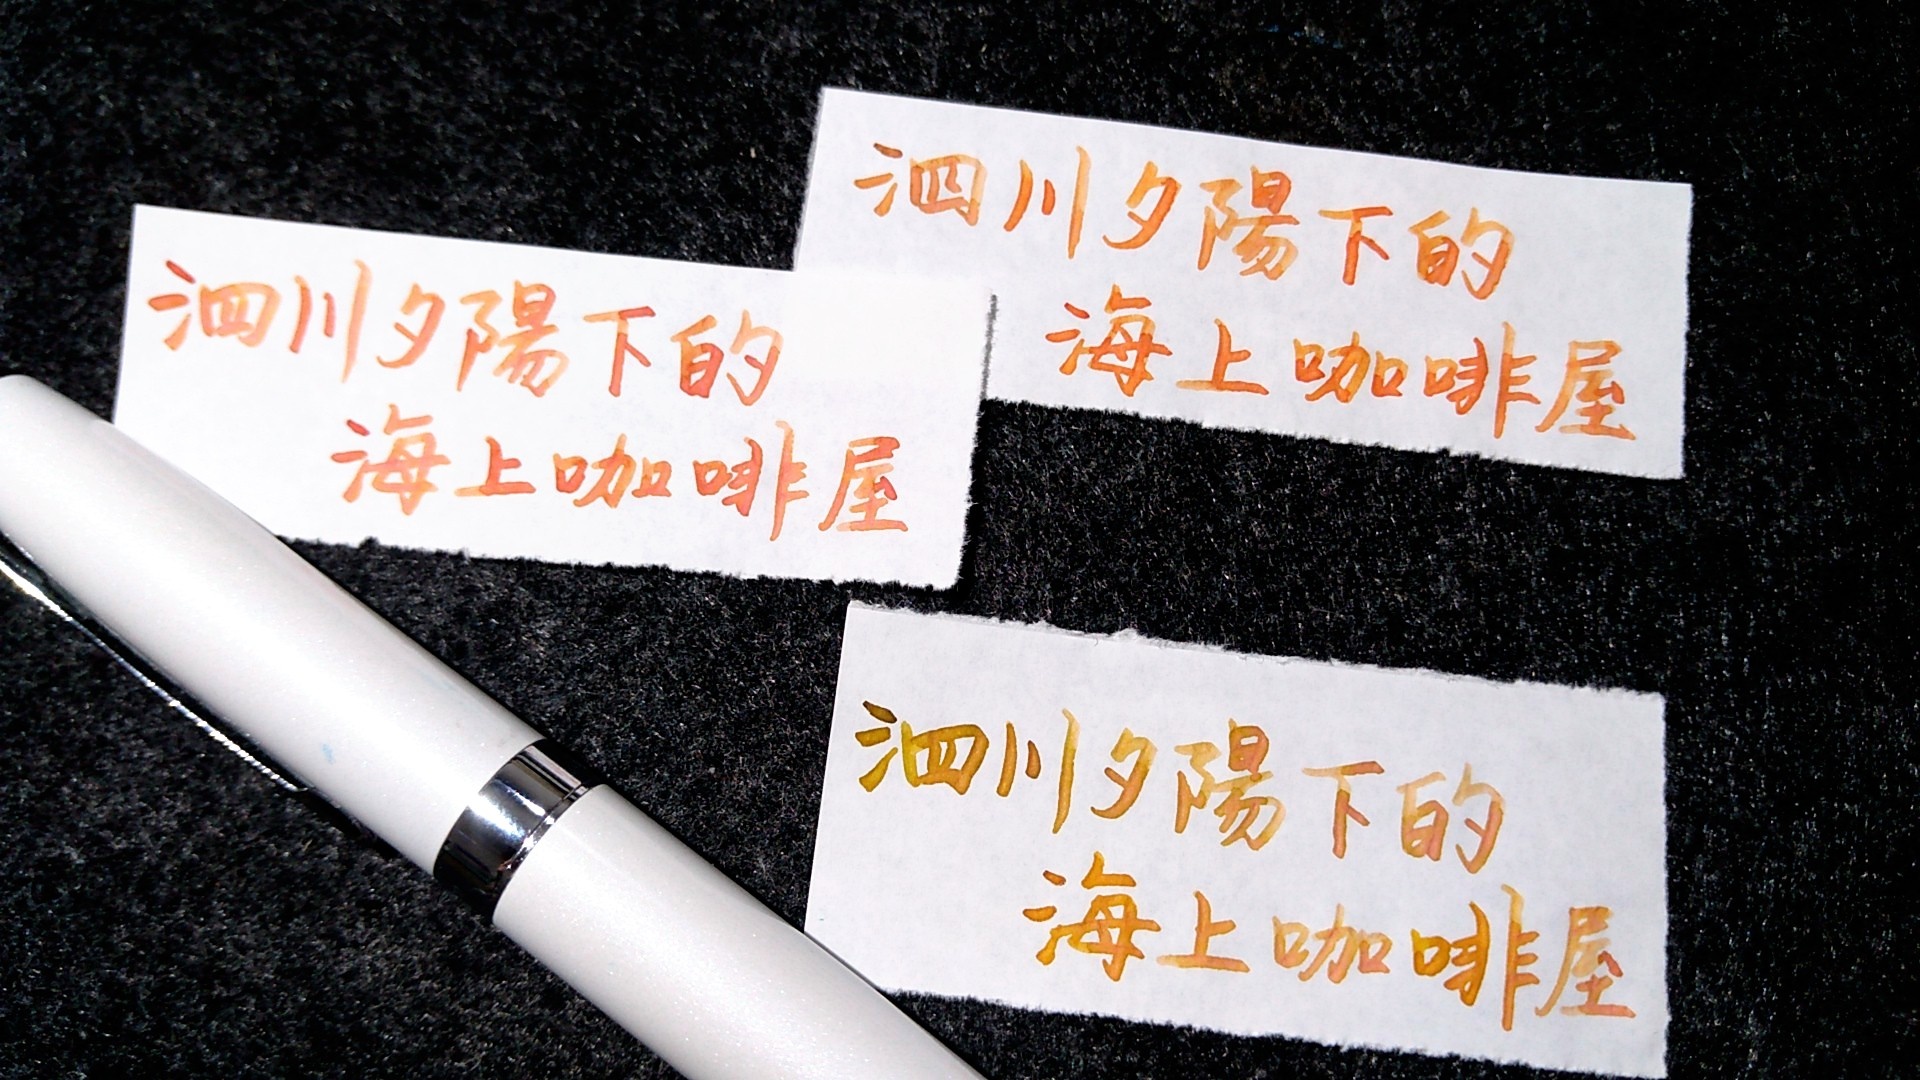 泗川夕陽下的
海上咖啡屋
泗川夕陽下的
海上咖啡屋
泗川夕陽下的
海上咖啡屋